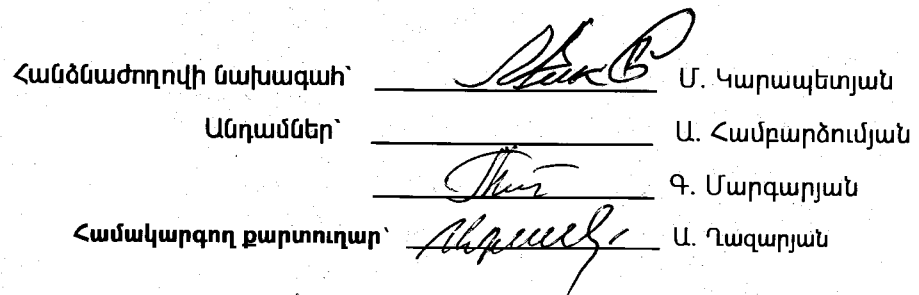 Հանձնաժողովի նախագահ՝ Մ. Կարապետյան
Անդամներ՝ Ա. Համբարձումյան
Գ. Մարգարյան
Համակարգող քարտուղար՝ Ա. Ղազարյան